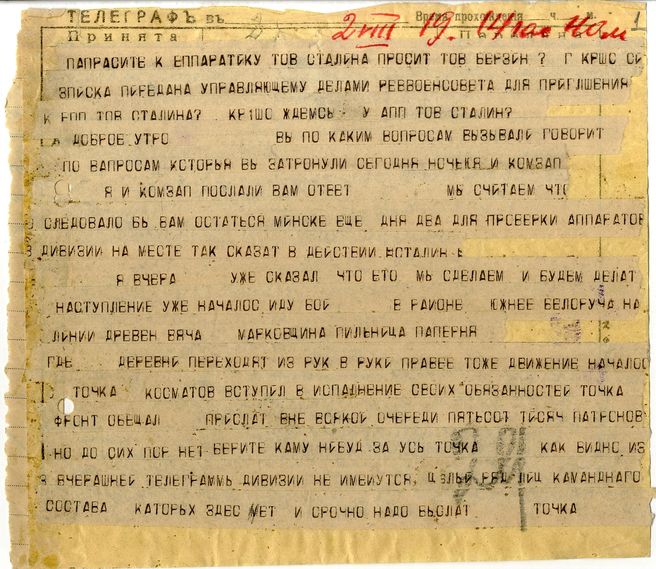 ТЕЛЕГРАФЪ въ Время прохожденія ч. м. 1
Принята 2
2 VIII 19. 14 час 40 м
ПАПРАСИТЕ К ЕППАРАТИКУ ТОВ СТАЛИНА ПРОСИТ ТОВ БЕРЗИН ? Г КРШС СЙ
ЗПИСКА ПЕРЕДАНА УПРАВЛЯЮЩЕМУ ДЕЛАМИ РЕВВОЕНСОВЕТА ДЛЯ ПРИГЛШЕНИЯ
К ЕПП ТОВ СТАЛИНА? КР1ШО ЖДЕМСЬ У АПП ТОВ СТАЛИН?
ДОБРОЕ УТРО ВЬ ПО КАКИМ ВОПРОСАМ ВЬЗЫВАЛИ ГОВОРИТ
ПО ВАПРОСАМ КСТОРЬЯ ВЬ ЗАТРОНУЛИ СЕГОДНЯ НОЧЬЮЯ И КОМЗАП
Я И КОМЗАП ПОСЛАЛИ ВАМ ОТВЕТ МЬ СЧИТАЕМ ЧТО
СЛЕДОВАЛО БЬ ВАМ ОСТАТЬСЯ МИНСКЕ ЕЩЕ ДНЯ ДВА ДЛЯ ПРОВЕРКИ АППАРАТОВ
ДИВИЗИИ НА МЕСТЕ ТАК СКАЗАТ В ДЕЙСТВИИ
Я ВЧЕРА УЖЕ СКАЗАЛ ЧТО ЕТО МЬ СДЕЛАЕМ И БУДЕМ ДЕЛАТ
НАСТУПЛЕНИЕ УЖЕ НАЧАЛОС ИДУ БОЙ В РАЙОНЕ ЮЖНЕЕ БЕЛОРУЧА НА
ЛИНИИ ДРЕВЕН ВЯЧА МАРКОВЩИНА ПИЛЬНИЦА ПАПЕРНЯ
ГДЕ ДЕРЕВНИ ПЕРЕХОДЯТ ИЗ РУК В РУКИ ПРАВЕЕ ТОЖЕ ДВИЖЕНИЕ НАЧАЛОС
ТОЧКА КОСМАТОВ ВСТУПИЛ В ИСПАЛНЕНИЕ СВОИХ ОБЯЗАННОСТЕЙ ТОЧКА
ФРОНТ ОБЕЩАЛ ПРИСЛАТ ВНЕ ВСЯКОЙ ОЧЕРЕДИ ПЯТЬСОТ ТИСЯЧ ПАТРОНОВ
НО ДО СИХ ПОР НЕТ БЕРИТЕ КАМУ НИБУД ЗА УСЬ ТОЧКА КАК ВИДНО ИЗ
ВЧЕРАШНЕЙ ТЕЛЕГРАММЬ ДИВИЗИИ НЕ ИМЕЮТСЯ ЦЕЛЬЙ РЯД ЛИЦ КАМАНДНАГО
СОСТАВА КАТОРЬХ ЗДЕС НЕТ И СРОЧНО НАДО ВЬСЛАТ ТОЧКА